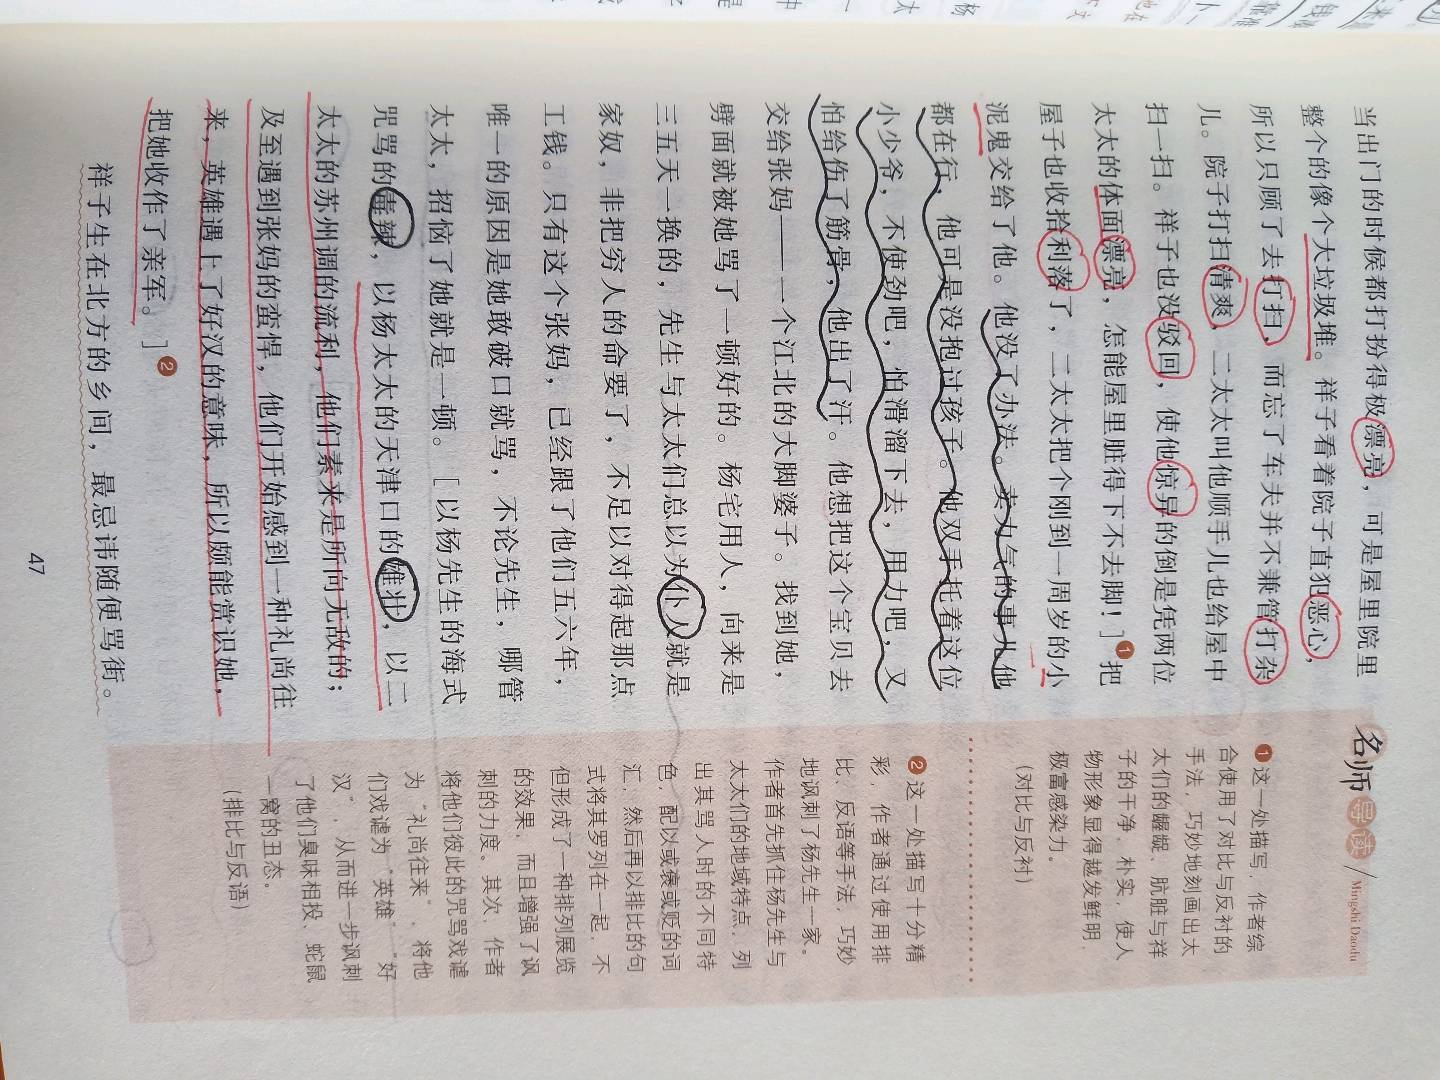 当出门的时候都打扮得极漂亮，可是屋里院里
整个的像个大垃圾堆。祥子看着院子直犯恶心，
所以只顾了去打扫，而忘了车夫并不兼管打杂
儿。院子打扫清爽，二太太叫他顺手儿也给屋中
扫一扫。祥子也没驳回，使他惊异的倒是凭两位
太太的体面漂亮，怎能屋里脏得下不去脚！]❶把
屋子也收拾利落了，二太太把个刚到一周岁的小
泥鬼交给了他。他没了办法。卖力气的事儿他
都在行，他可是没抱过孩子。他双手托着这位
小少爷，不使劲吧，怕滑溜下去，用力吧，又
怕给伤了筋骨，他出了汗。他想把这个宝贝去
交给张妈——一个江北的大脚婆子。找到她，
劈面就被她骂了一顿好的。杨宅用人，向来是
三五天一换的，先生与太太们总以为仆人就是
家奴，非把穷人的命要了，不足以对得起那点
工钱。只有这个张妈，已经跟了他们五六年，
唯一的原因是她敢破口就骂，不论先生，哪管
太太，招恼了她就是一顿。[以杨先生的海式
咒骂的毒辣，以杨太太的天津口的雄壮，以二
太太的苏州调的流利，他们素来是所向无敌的；
及至遇到张妈的蛮悍，他们开始感到一种礼尚往
来，英雄遇上了好汉的意味，所以颇能赏识她，
把她收作了亲军。]❷
祥子生在北方的乡间，最忌讳随便骂街。
名师导读/Mingshi Daodu
❶这一处描写，作者综
合使用了对比与反衬的
手法，巧妙地刻画出太
太们的龌龊、肮脏与祥
子的干净、朴实，使人
物形象显得越发鲜明，
极富感染力。
（对比与反衬）
❷这一处描写十分精
彩，作者通过使用排
比、反语等手法，巧妙
地讽刺了杨先生一家。
作者首先抓住杨先生与
太太们的地域特点，列
出其骂人时的不同特
色，配以或褒或贬的词
汇，然后再以排比的句
式将其罗列在一起，不
但形成了一种排列展览
的效果，而且增强了讽
刺的力度。其次，作者
将他们彼此的咒骂戏谑
为“礼尚往来”，将他
们戏谑为“英雄”“好
汉”，从而进一步讽刺
了他们臭味相投、蛇鼠
一窝的丑态。
（排比与反语）
47